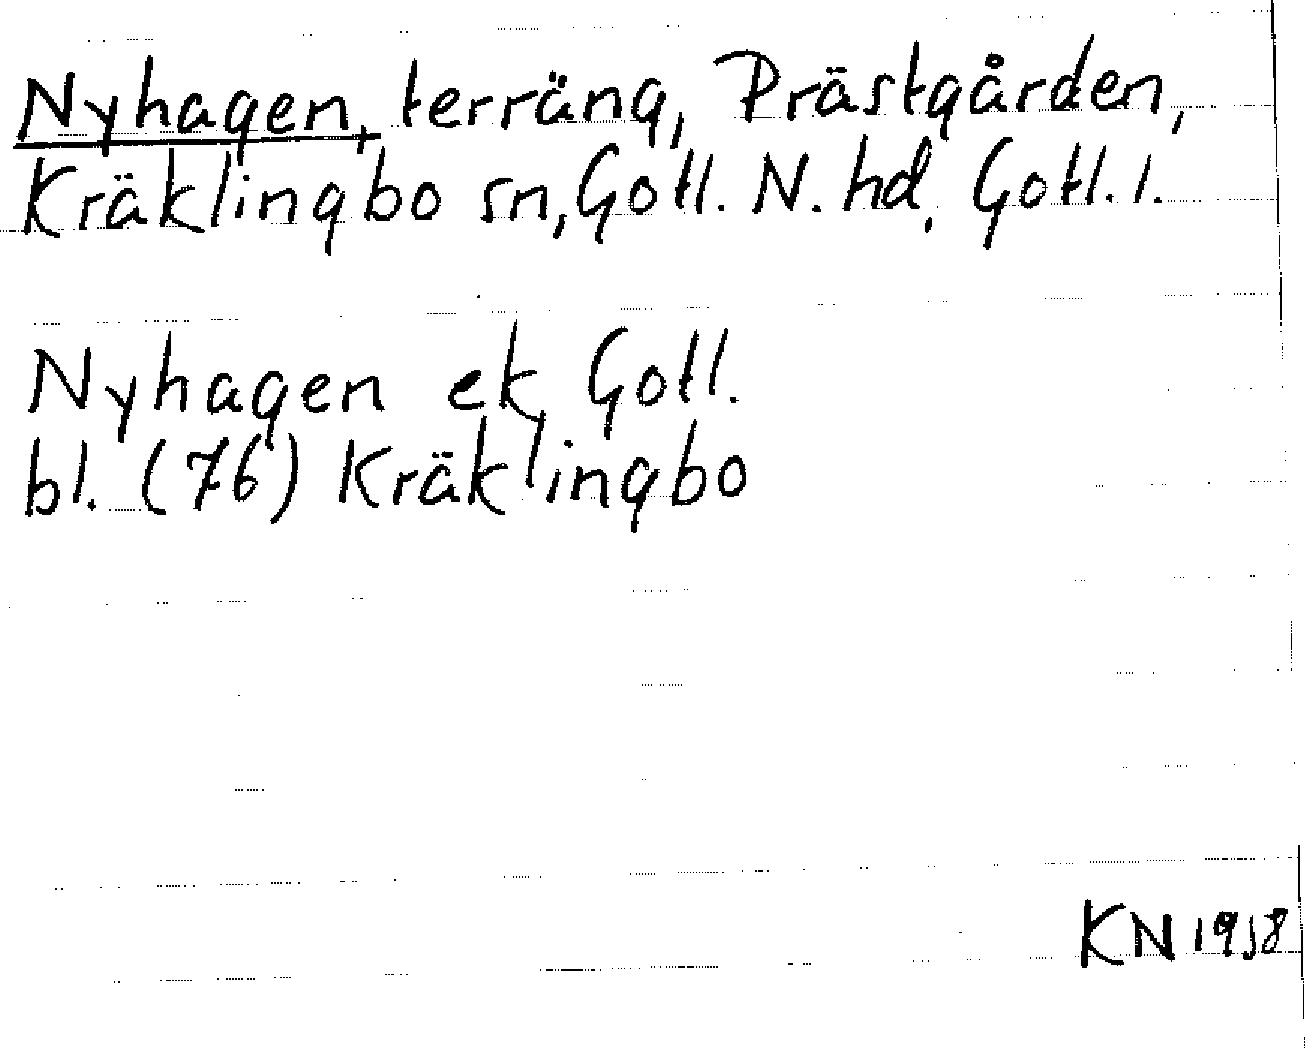 Nyhagen, terräng, Prästgården,
Kräklingbo sn, Gotl. N. hd, Gotl. l.
Nyhagen ek Gotl.
bl. (76) Kräklingbo
KN